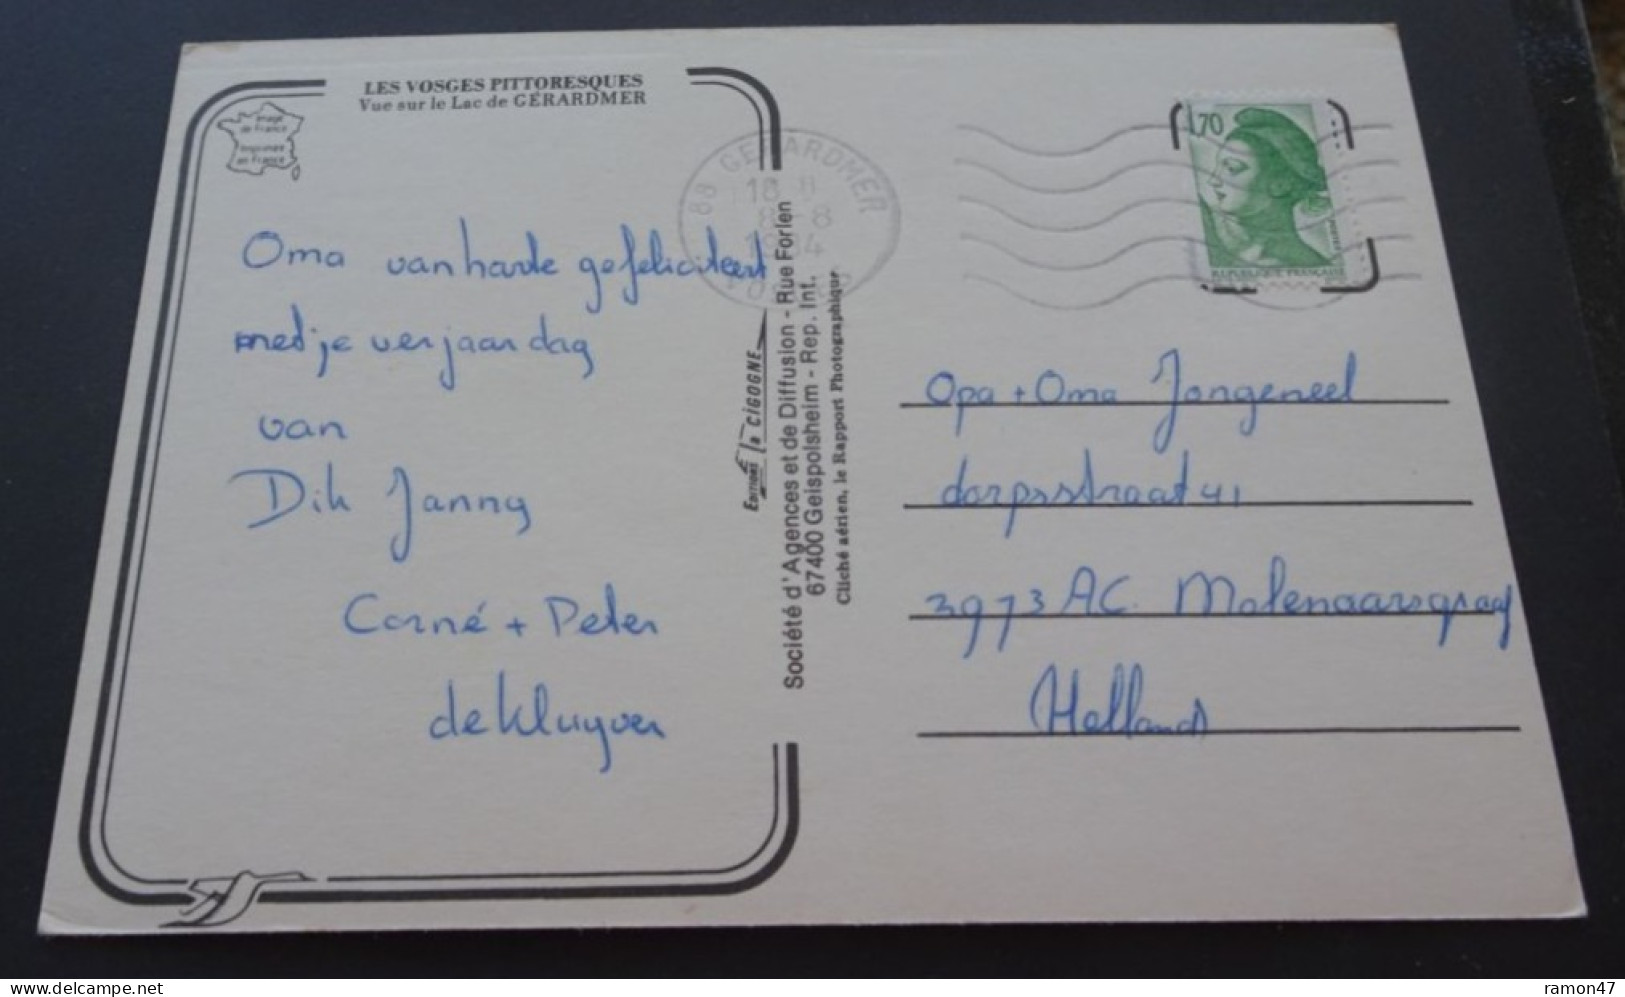 LES VOSGES PITTORESQUES
Vue sur le Lac de GÉRARDMER
Image
de France
Imprimée
en France
88 GERARDMER
18 H
8 - 8
1984
VOSGES
1,70
REPUBLIQUE FRANÇAISE
Oma van harte gefeliciteert
met je verjaardag
van
Dik Janny
Corné + Peter
de Kluyver
Editions la CIGOGNE
Société d'Agences et de Diffusion - Rue Forlen
67400 Geispolsheim - Rep. Int.
Cliché aérien, le Rapport Photographique
Opa + Oma Jongeneel
dorpsstraat 41
2973 AC. Molenaarsgraaf
Holland
ramon47